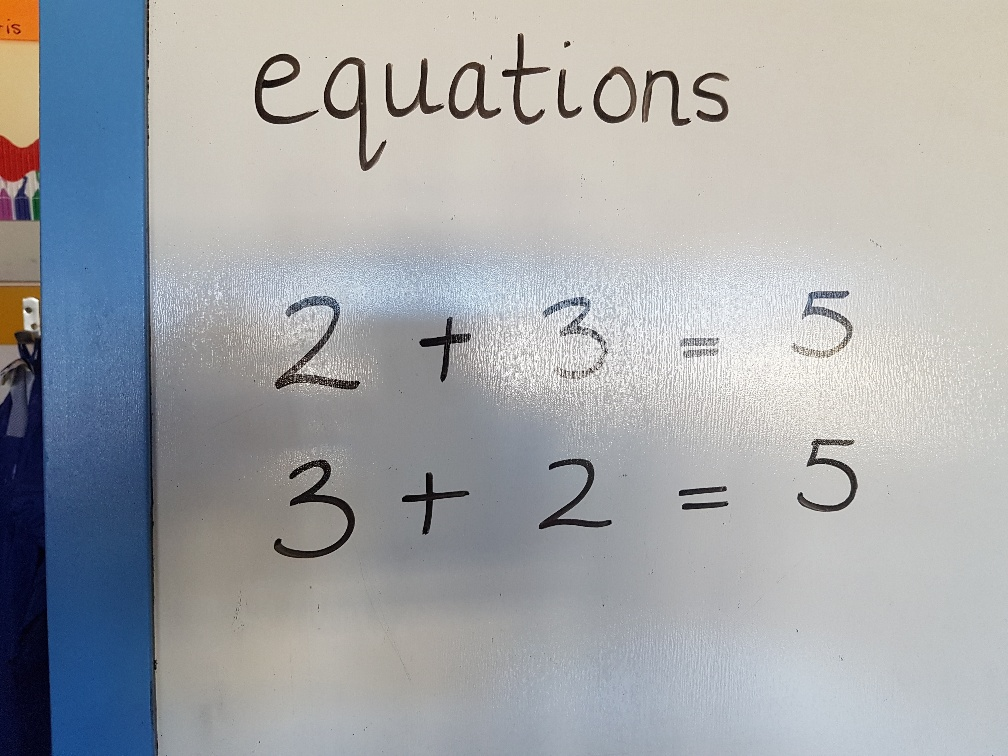 is
equations
2 + 3 = 5
3 + 2 = 5